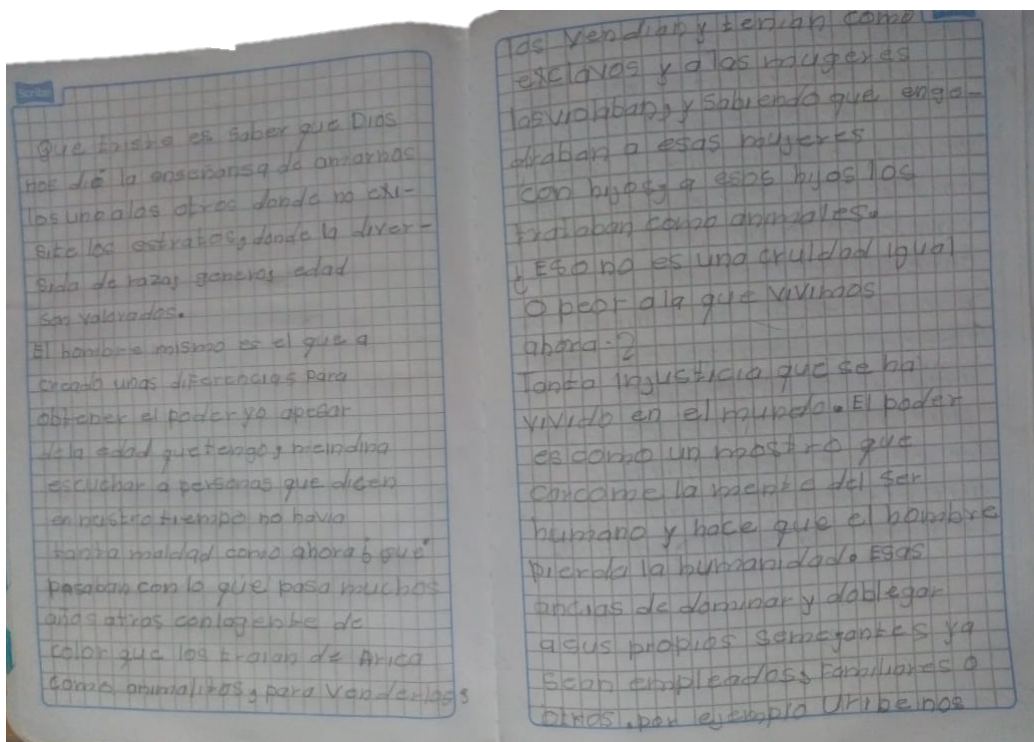 Scribe
Que triste es saber que Dios
nos dió la enseñansa de amarnos
los uno a los otros donde no exi-
site los estratos, donde la diver-
sida de razas generos edad
son valorados.
El hombre mismo es el que a
creado unas diferencias para
obtener el poder yo apesar
de la edad que tengo, me indina
escuchar a personas que dicen
en nustro tiempo no havia
tanta maldad como ahora ¿ que
pasaban con lo que paso muchos
años atras con la gente de
color que los traian de Africa
como animalitos, para venderlos
los vendian y tenian como
exclavos y a las mugeres
las violaban, y sabiendo que enge-
draban a esas mugeres
con hijos, a esos hijos los
trataban como animales.
¿ Eso no es una cruldad igual
o peor a la que vivimos
ahora - ?
Tanta injusticia que se ha
vivido en el mundo. El poder
es como un mostro que
carcome la mente del ser
humano y hace que el hombre
pierda la humanidad. Esas
ancias de dominar y doblegar
a sus propios semejantes ya
sean empleados, familiares o
otros, por ejemplo Uribe nos